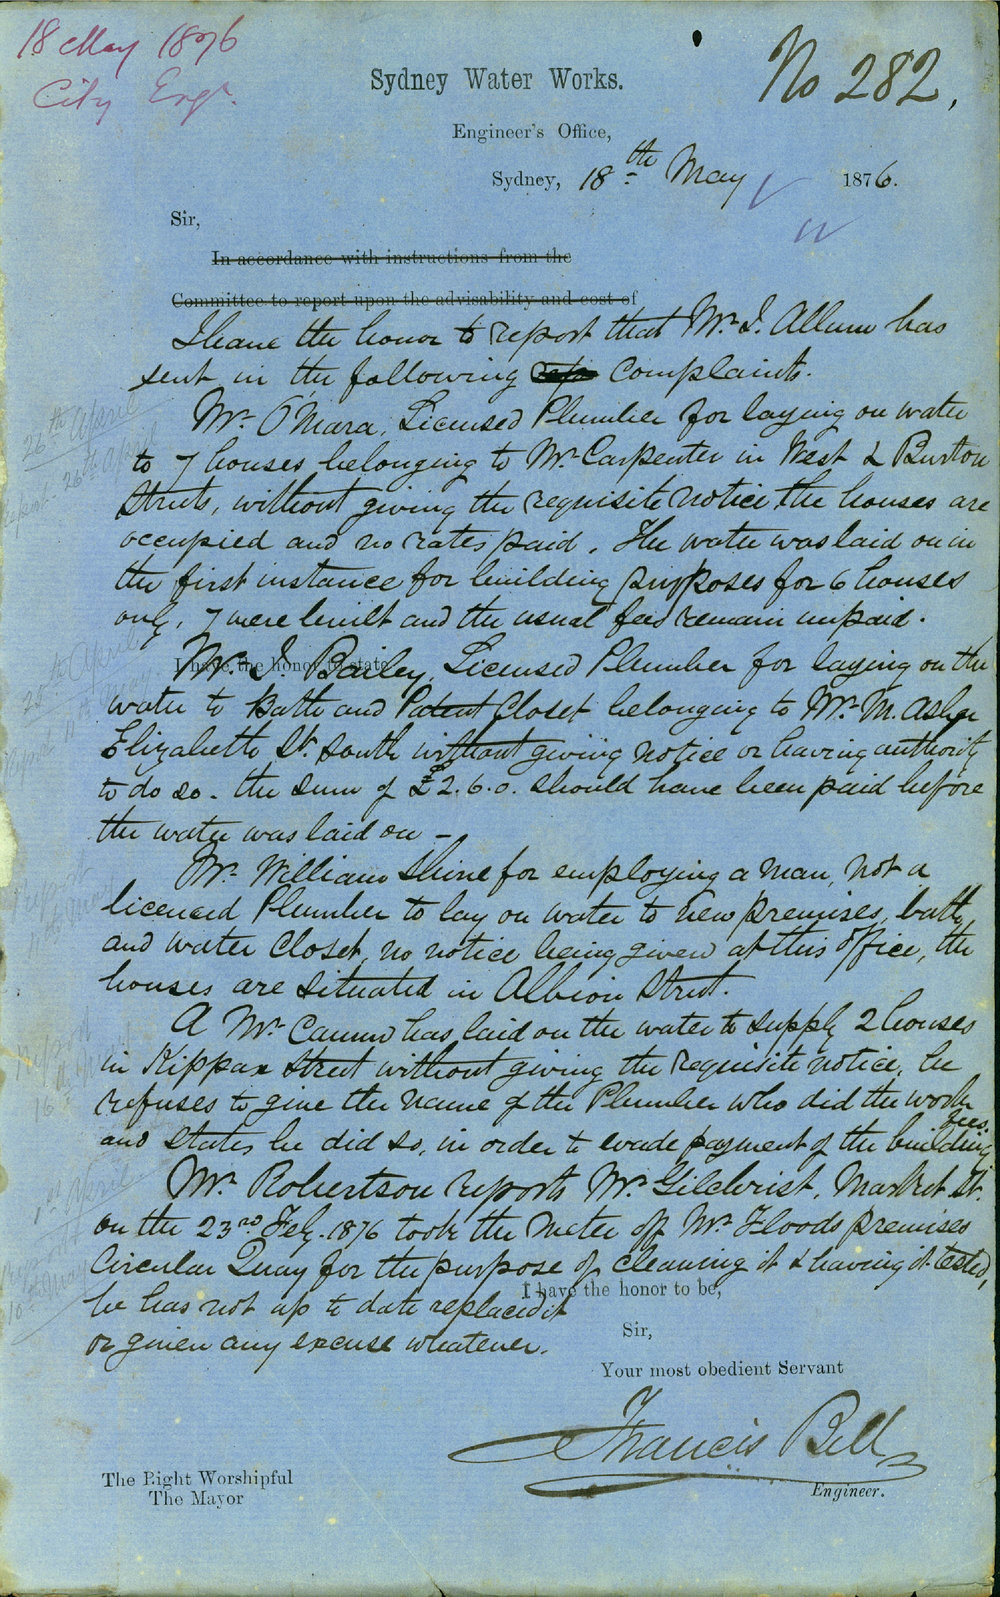 18 May 1876
City Engr.
No 282.
Sydney Water Works.
Engineer's Office,
Sydney, 18th May 1876.
Sir,
In accordance with instructions from the
Committee to report upon the advisability and cost of
I have the honor to report that Mr. J. Allum has
sent in the following Complaints.
Mr. O'Mara, Licensed Plumber for laying on water
to 7 houses belonging to Mr. Carpenter in West & Burton
Streets, without giving the requisite notice, the houses are
occupied and no rates paid. The water was laid on in
the first instance for building purposes for 6 houses
only, 7 were built and the usual fees remain unpaid.
I have the honor to state
Mr. J. Bailey, Licensed Plumber for laying on the
water to Bath and Patent Closet belonging to Mr. M. Asher
Elizabeth St. South without giving notice or having authority
to do so - the sum of £2.6.0. should have been paid before
the water was laid on -
Mr. William Shine for employing a man, not a
licensed Plumber to lay on water to new premises, bath,
and water Closet, no notice being given at this office, the
houses are situated in Albion Street.
A Mr. has laid on the water to supply 2 houses
in Kippax Street without giving the requisite notice, he
refuses to give the name of the Plumber who did the work
and states he did so, in order to evade payment of the building fees.
Mr. Robertson reports Mr. Gilchrist, Market St.
on the 23rd Feby. 1876 took the Meter off Mr. Floods premises
Circular Quay for the purpose of cleaning it & having it tested,
he has not up to date replaced it
or given any excuse whatever.
I have the honor to be,
Sir,
Your most obedient Servant
Francis Bell
Engineer.
The Right Worshipful
The Mayor
26th April
26th April
25th April
1st April